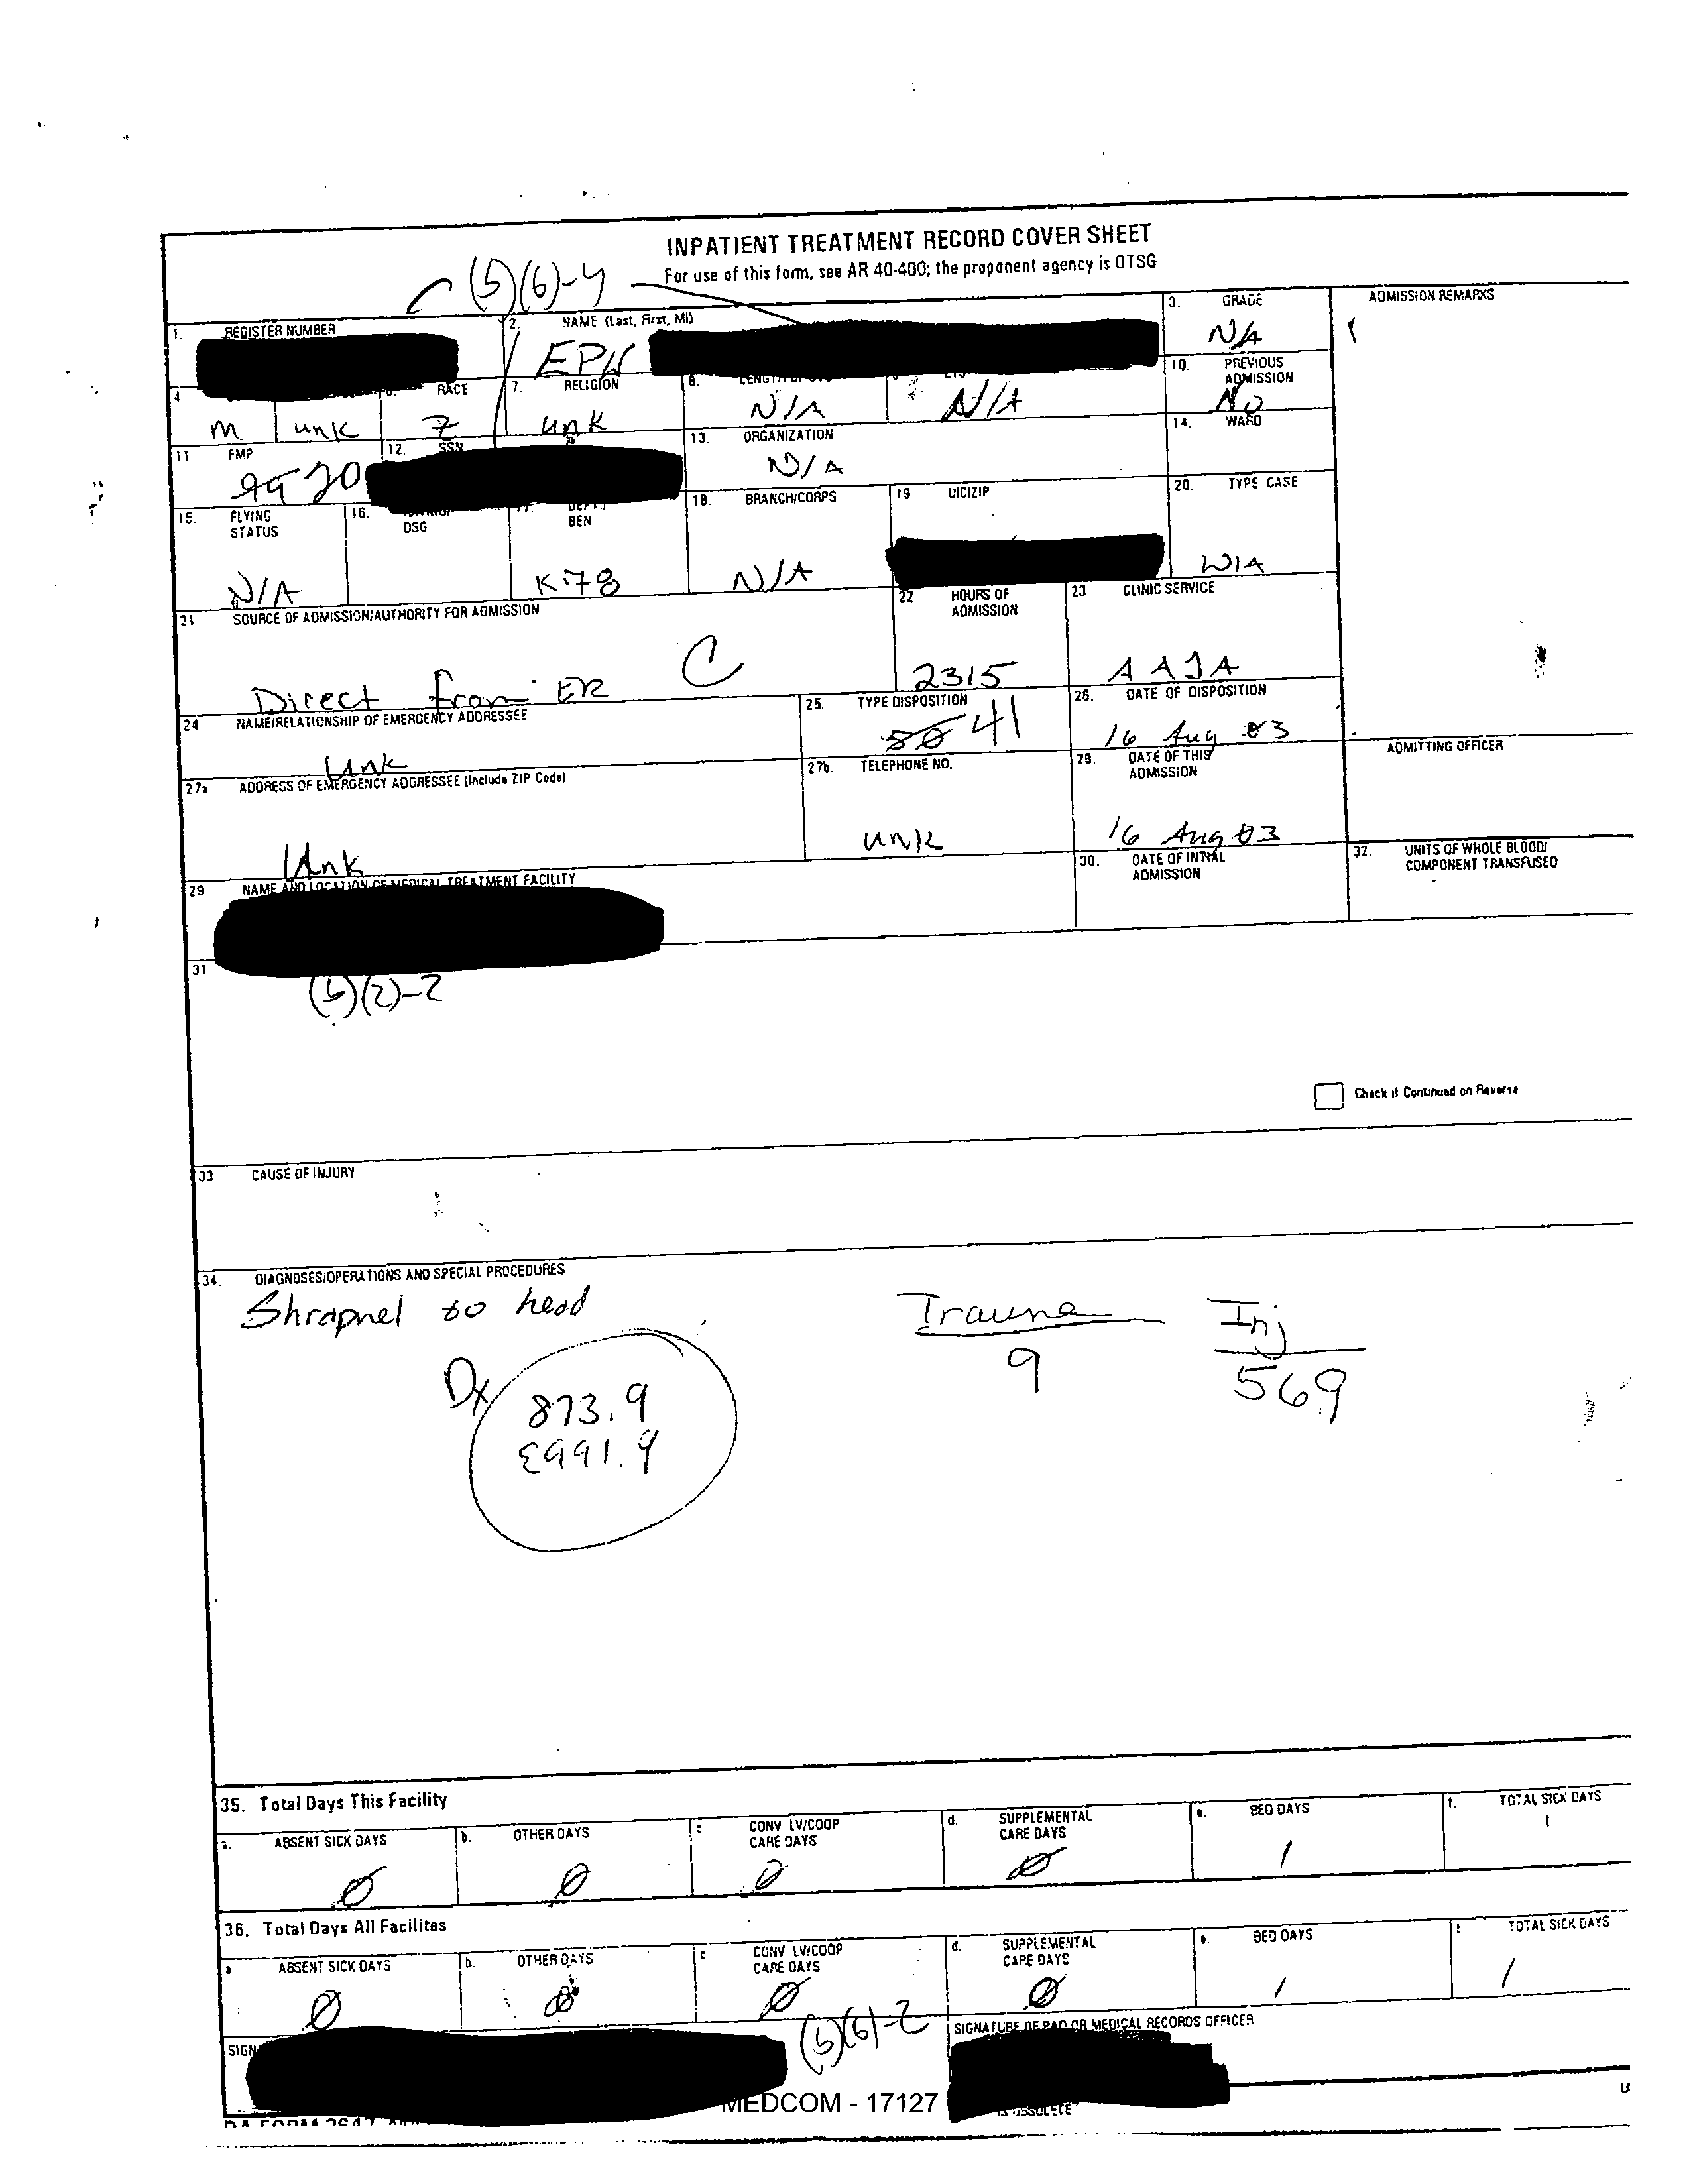 INPATIENT TREATMENT RECORD COVER SHEET
For use of this form, see AR 40-400; the proponent agency is OTSG
(b)(6)-4
1. REGISTER NUMBER
2. NAME (Last, First, MI)
EPW
3. GRADE
N/A
ADMISSION REMARKS
4
M
unk
RACE
Z
7. RELIGION
unk
8.
N/A
N/A
10. PREVIOUS ADMISSION
No
11 FMP
99 20
12. SSN
13. ORGANIZATION
N/A
14. WARD
15. FLYING STATUS
N/A
16.
DSG
BEN
K78
18. BRANCH/CORPS
N/A
19 UIC/ZIP
20. TYPE CASE
WIA
21 SOURCE OF ADMISSION/AUTHORITY FOR ADMISSION
Direct from ER C
22 HOURS OF ADMISSION
2315
23 CLINIC SERVICE
AAJA
24 NAME/RELATIONSHIP OF EMERGENCY ADDRESSEE
Unk
25. TYPE DISPOSITION
41
26. DATE OF DISPOSITION
16 Aug 03
ADMITTING OFFICER
27a ADDRESS OF EMERGENCY ADDRESSEE (Include ZIP Code)
Unk
27b. TELEPHONE NO.
unk
28. DATE OF THIS ADMISSION
16 Aug 03
29. NAME AND LOCATION OF MEDICAL TREATMENT FACILITY
30. DATE OF INTIAL ADMISSION
32. UNITS OF WHOLE BLOOD/ COMPONENT TRANSFUSED
31
(b)(2)-2
Check if Continued on Reverse
33 CAUSE OF INJURY
34. DIAGNOSES/OPERATIONS AND SPECIAL PROCEDURES
Shrapnel to head
Trauma
9
Inj
569
Dx
873.9
E991.9
35. Total Days This Facility
a. ABSENT SICK DAYS
b. OTHER DAYS
c CONV LV/COOP CARE DAYS
d. SUPPLEMENTAL CARE DAYS
e. BED DAYS
f. TOTAL SICK DAYS
Ø Ø Ø Ø 1 1
36. Total Days All Facilites
a ABSENT SICK DAYS
b. OTHER DAYS
c CONV LV/COOP CARE DAYS
d. SUPPLEMENTAL CARE DAYS
e. BED DAYS
f TOTAL SICK DAYS
Ø Ø Ø Ø 1 1
SIGN
(b)(6)-2
SIGNATURE OF PAD OR MEDICAL RECORDS OFFICER
MEDCOM - 17127
IS OBSOLETE